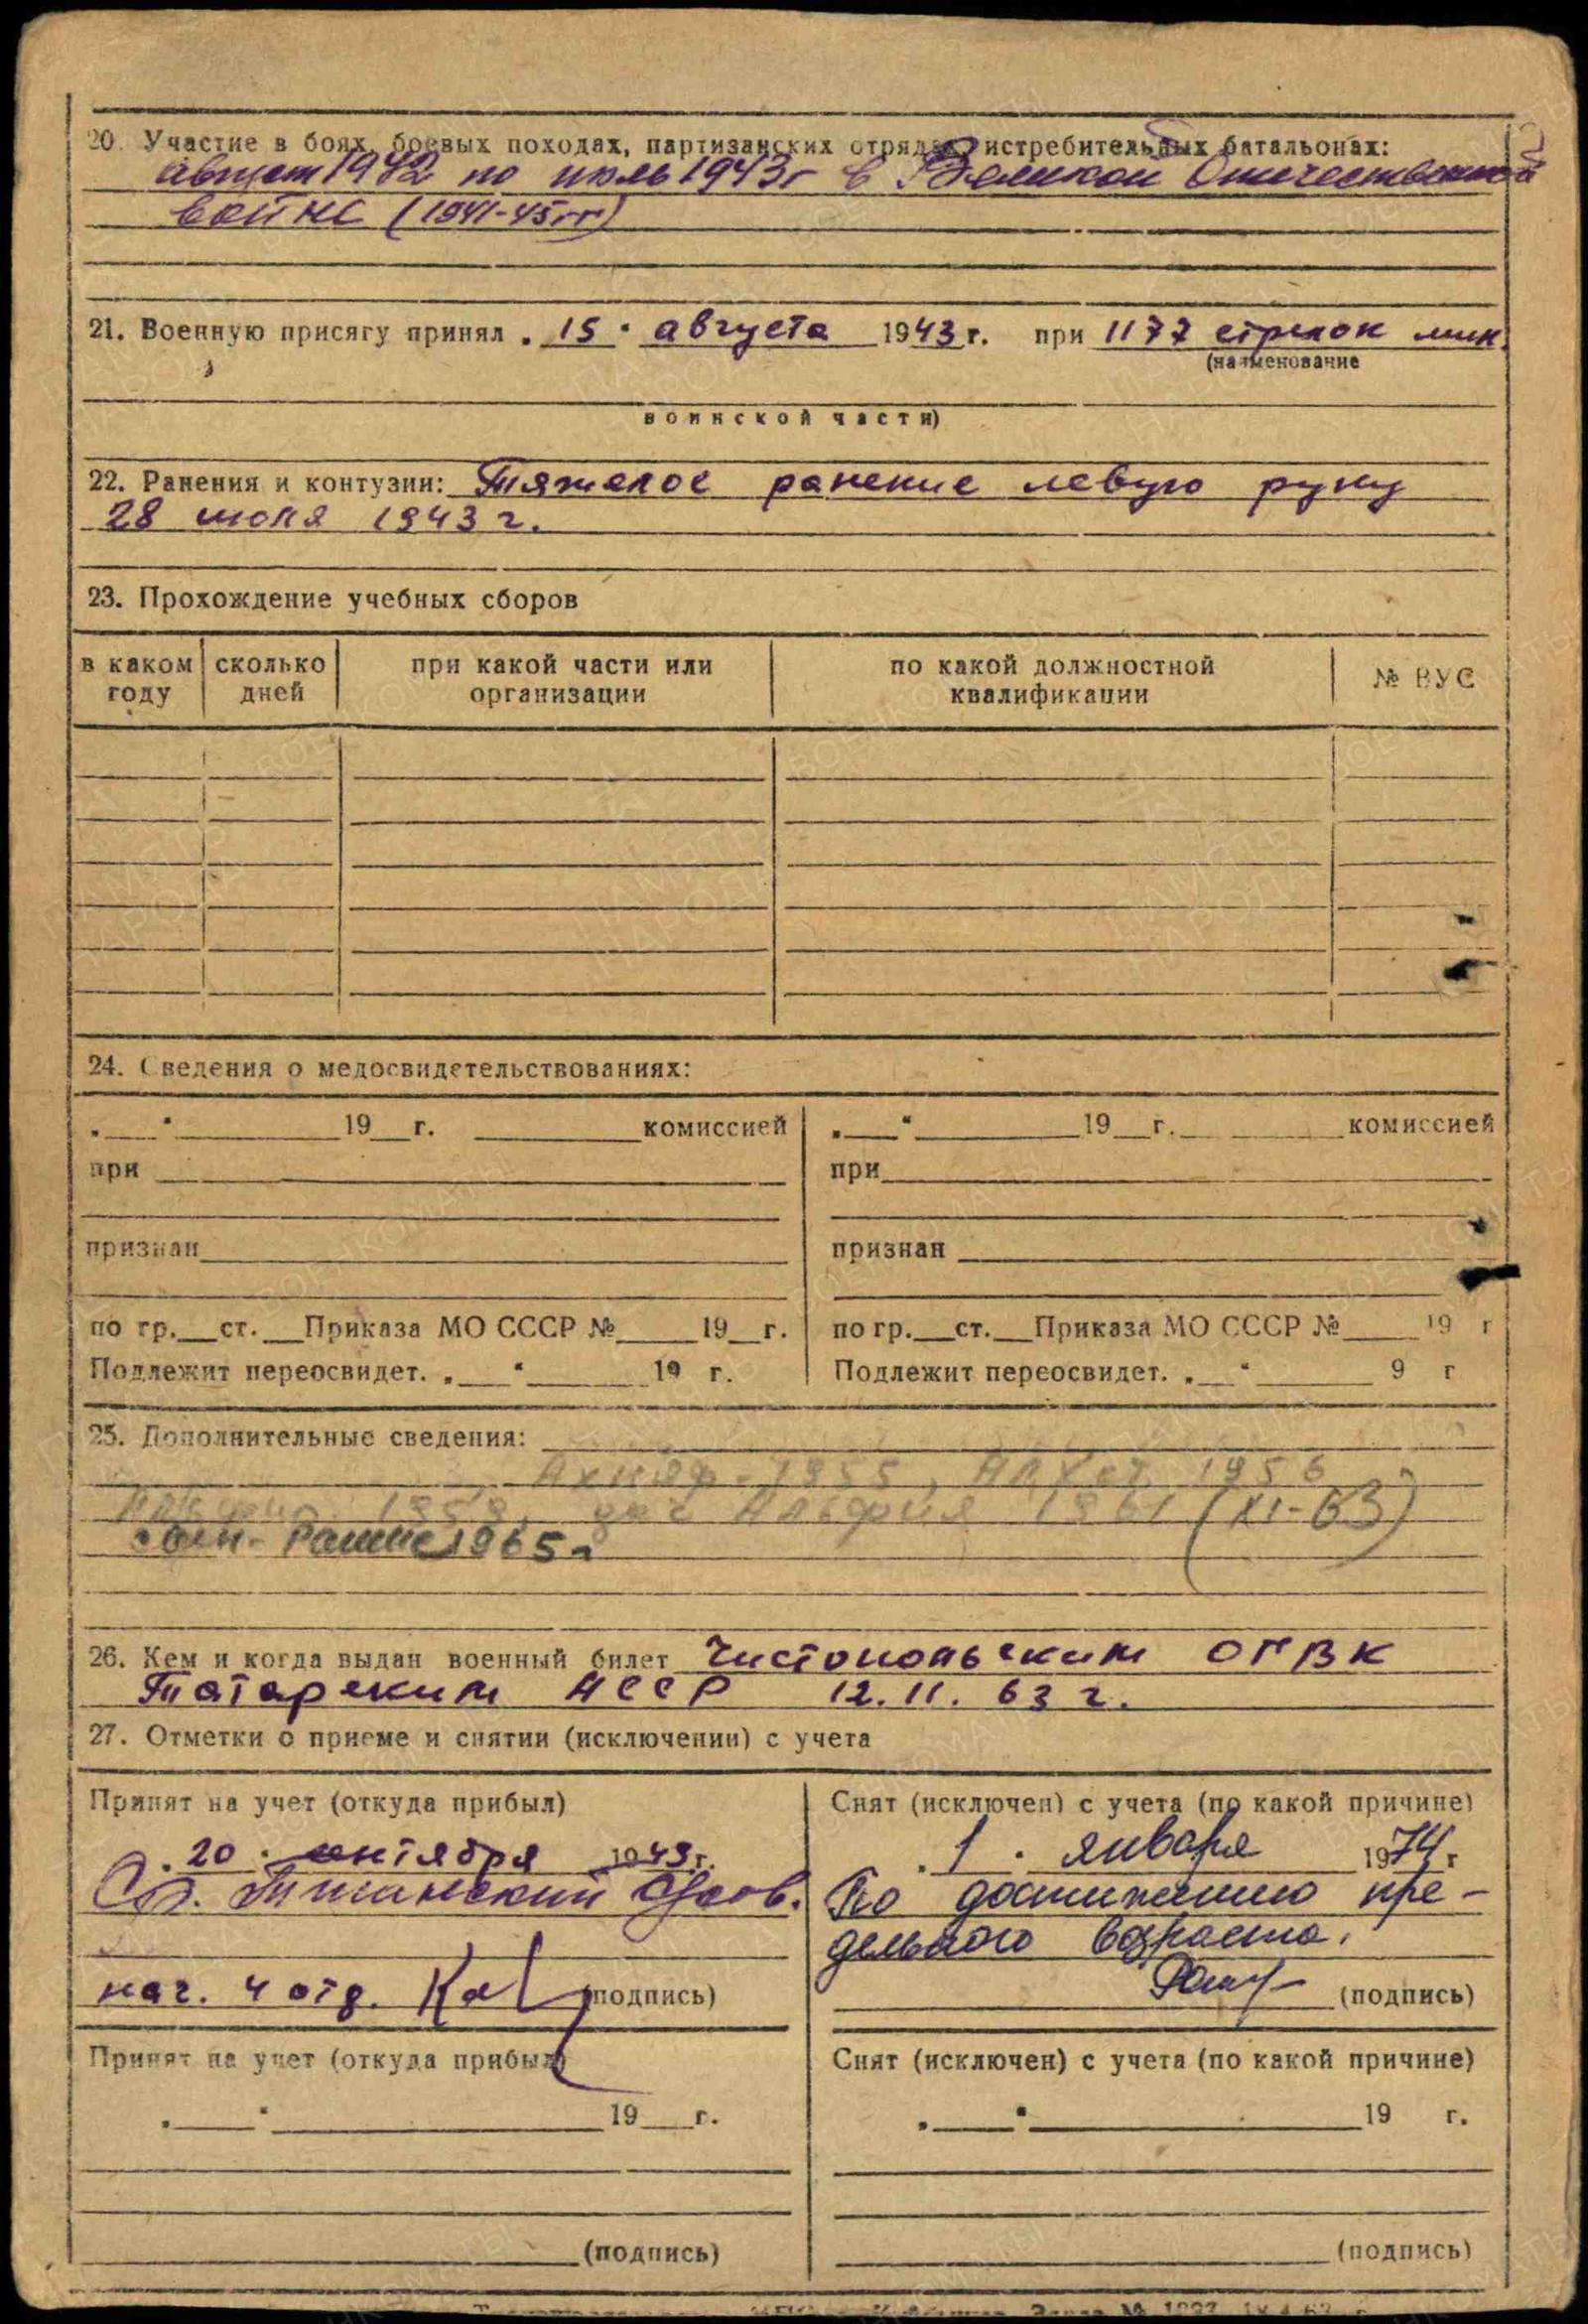 20. Участие в боях, боевых походах, партизанских отрядах, истребительных батальонах:
август 1942 по июль 1943г в Великой Отечественной
войне (1941-45гг)
21. Военную присягу принял „15“ августа 1943г. при 1177 стрелок мин.
(наименование
воинской части)
22. Ранения и контузии: Тяжелое ранение левую руку
28 июля 1943 г.
23. Прохождение учебных сборов
в каком году | сколько дней | при какой части или организации | по какой должностной квалификации | № ВУС
24. Сведения о медосвидетельствованиях:
„ “ 19 г. комиссией
при
признан
по гр. ст. Приказа МО СССР № 19 г.
Подлежит переосвидет. „ “ 19 г.
„ “ 19 г. комиссией
при
признан
по гр. ст. Приказа МО СССР № 19 г
Подлежит переосвидет. „ “ 9 г
25. Дополнительные сведения:
1955, 1956
1959, доч Альфия 1961 (XI-63)
1965г
26. Кем и когда выдан военный билет Чистопольским ОГВК
Татарским АССР 12.11.63 г.
27. Отметки о приеме и снятии (исключении) с учета
Принят на учет (откуда прибыл)
„20“ октября 1943г.
нач. 4 отд. (подпись)
Снят (исключен) с учета (по какой причине)
„1“ января 1974г
По достижению пре-
дельного возраста.
(подпись)
Принят на учет (откуда прибыл)
„ “ 19 г.
(подпись)
Снят (исключен) с учета (по какой причине)
„ “ 19 г.
(подпись)